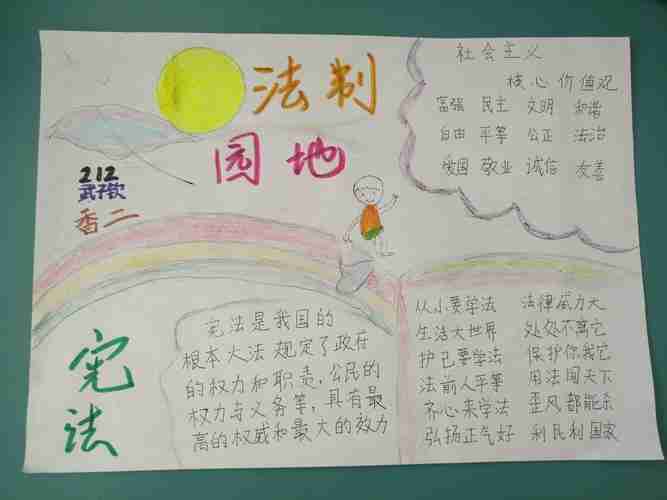 法制
园地
212
武子钦
香二
社会主义
核心价值观
富强 民主 文明 和谐
自由 平等 公正 法治
爱国 敬业 诚信 友善
宪法
宪法是我国的
根本大法 规定了政府
的权力和职责,公民的
权力与义务等,具有最
高的权威和最大的效力
从小要学法 法律威力大
生活大世界 处处不离它
护己要学法 保护你我它
法前人平等 用法闯天下
齐心来学法 歪风都能杀
弘扬正气好 利民利国家